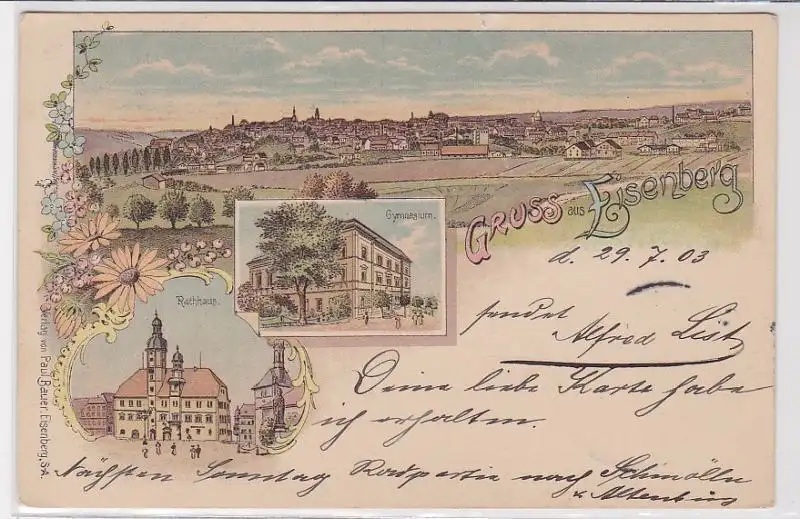 Gymnasium.
Gruss aus Eisenberg
d. 29. 7. 03
sendet
Alfred List
Rathhaus.
Deine liebe Karte habe
ich erhalten.
Nächsten Sonntag Radpartie nach Schmölln
u. Altenburg
Verlag von Paul Bauer, Eisenberg, S.-A.